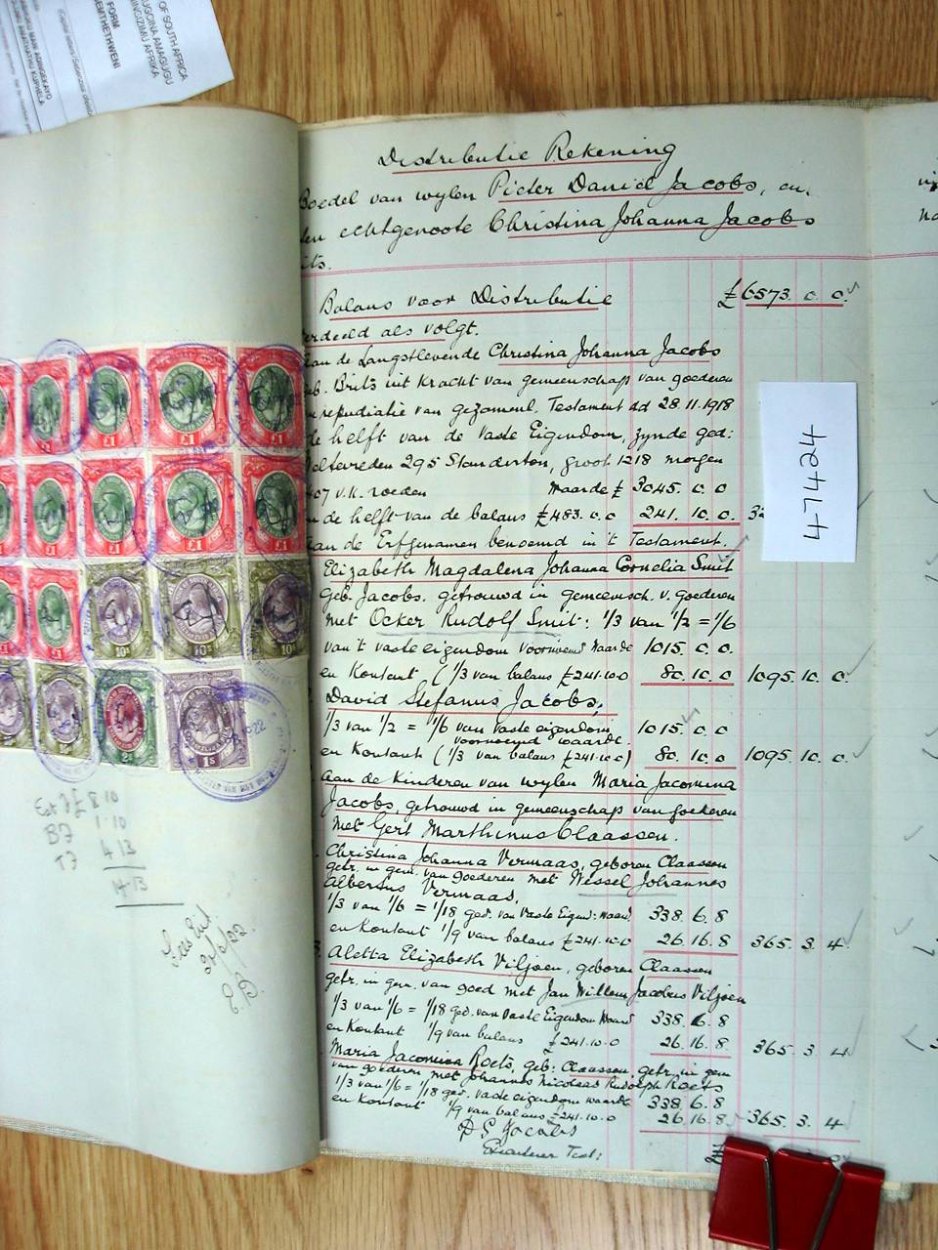 OF SOUTH AFRICA
FORM
Distributie Rekening
Boedel van wylen Pieter Daniël Jacobs, en
echtgenoote Christina Johanna Jacobs
Balans voor Distributie £6573. 0. 0.
verdeeld als volgt.
aan de Langstlevende Christina Johanna Jacobs
geb. Britz uit kracht van gemeenschap van goederen
repudiatie van gezamenl. Testament dd 28.11.1918
de helft van de Vaste Eigendom, zynde ged:
Weltevreden 295 Standerton, groot 1218 morgen
407 v.k. roeden Waarde £ 3045. 0. 0
de helft van de balans £483.0.0 241. 10. 0. 32
aan de Erfgenamen benoemd in 't Testament.
Elizabeth Magdalena Johanna Cornelia Smit
geb. Jacobs. getrouwd in gemeensch. v. goederen
met Ocker Rudolf Smit: 1/3 van 1/2 = 1/6
van 't vaste eigendom voornoemd waarde 1015. 0. 0.
en Kontant (1/3 van balans £241.10.0 80. 10. 0 1095. 10. 0.
David Stefanus Jacobs,
1/3 van 1/2 = 1/6 van vaste eigendom 1015. 0. 0
voornoemd waarde
en Kontant (1/3 van balans £241.10.0) 80. 10. 0 1095. 10. 0.
aan de Kinderen van wylen Maria Jacomina
Jacobs, getrouwd in gemeenschap van goederen
met Gert Marthinus Claassen.
Christina Johanna Vermaas, geboren Claassen
getr. in gem. van goederen met Wessel Johannes
Albertus Vermaas.
1/3 van 1/6 = 1/18 ged. van Vaste Eigend: waard 338. 6. 8
en Kontant 1/9 van balans £241.10.0 26. 16. 8 365. 3. 4
Aletta Elizabeth Viljoen, geboren Claassen
getr. in gem. van goed met Jan Willem Jacobus Viljoen
1/3 van 1/6 = 1/18 ged. van Vaste Eigendom Waard 338. 6. 8
en Kontant 1/9 van balans £241.10.0 26. 16. 8 365. 3. 4
Maria Jacomina Roets, geb: Claassen, getr. in gem
van goederen met Johannes Nicolaas Rudolph Roets
1/3 van 1/6 = 1/18 ged. vaste eigendom waarde 338. 6. 8
en Kontant 1/9 van balans £241.10.0 26. 16. 8 365. 3. 4
D S Jacobs
Executeur Test:
47424
£1 £1 £1 £1
£1 £1 £1 £1
£1 10s 10s 10s
1s
8 10
1.10
4 13
14 13